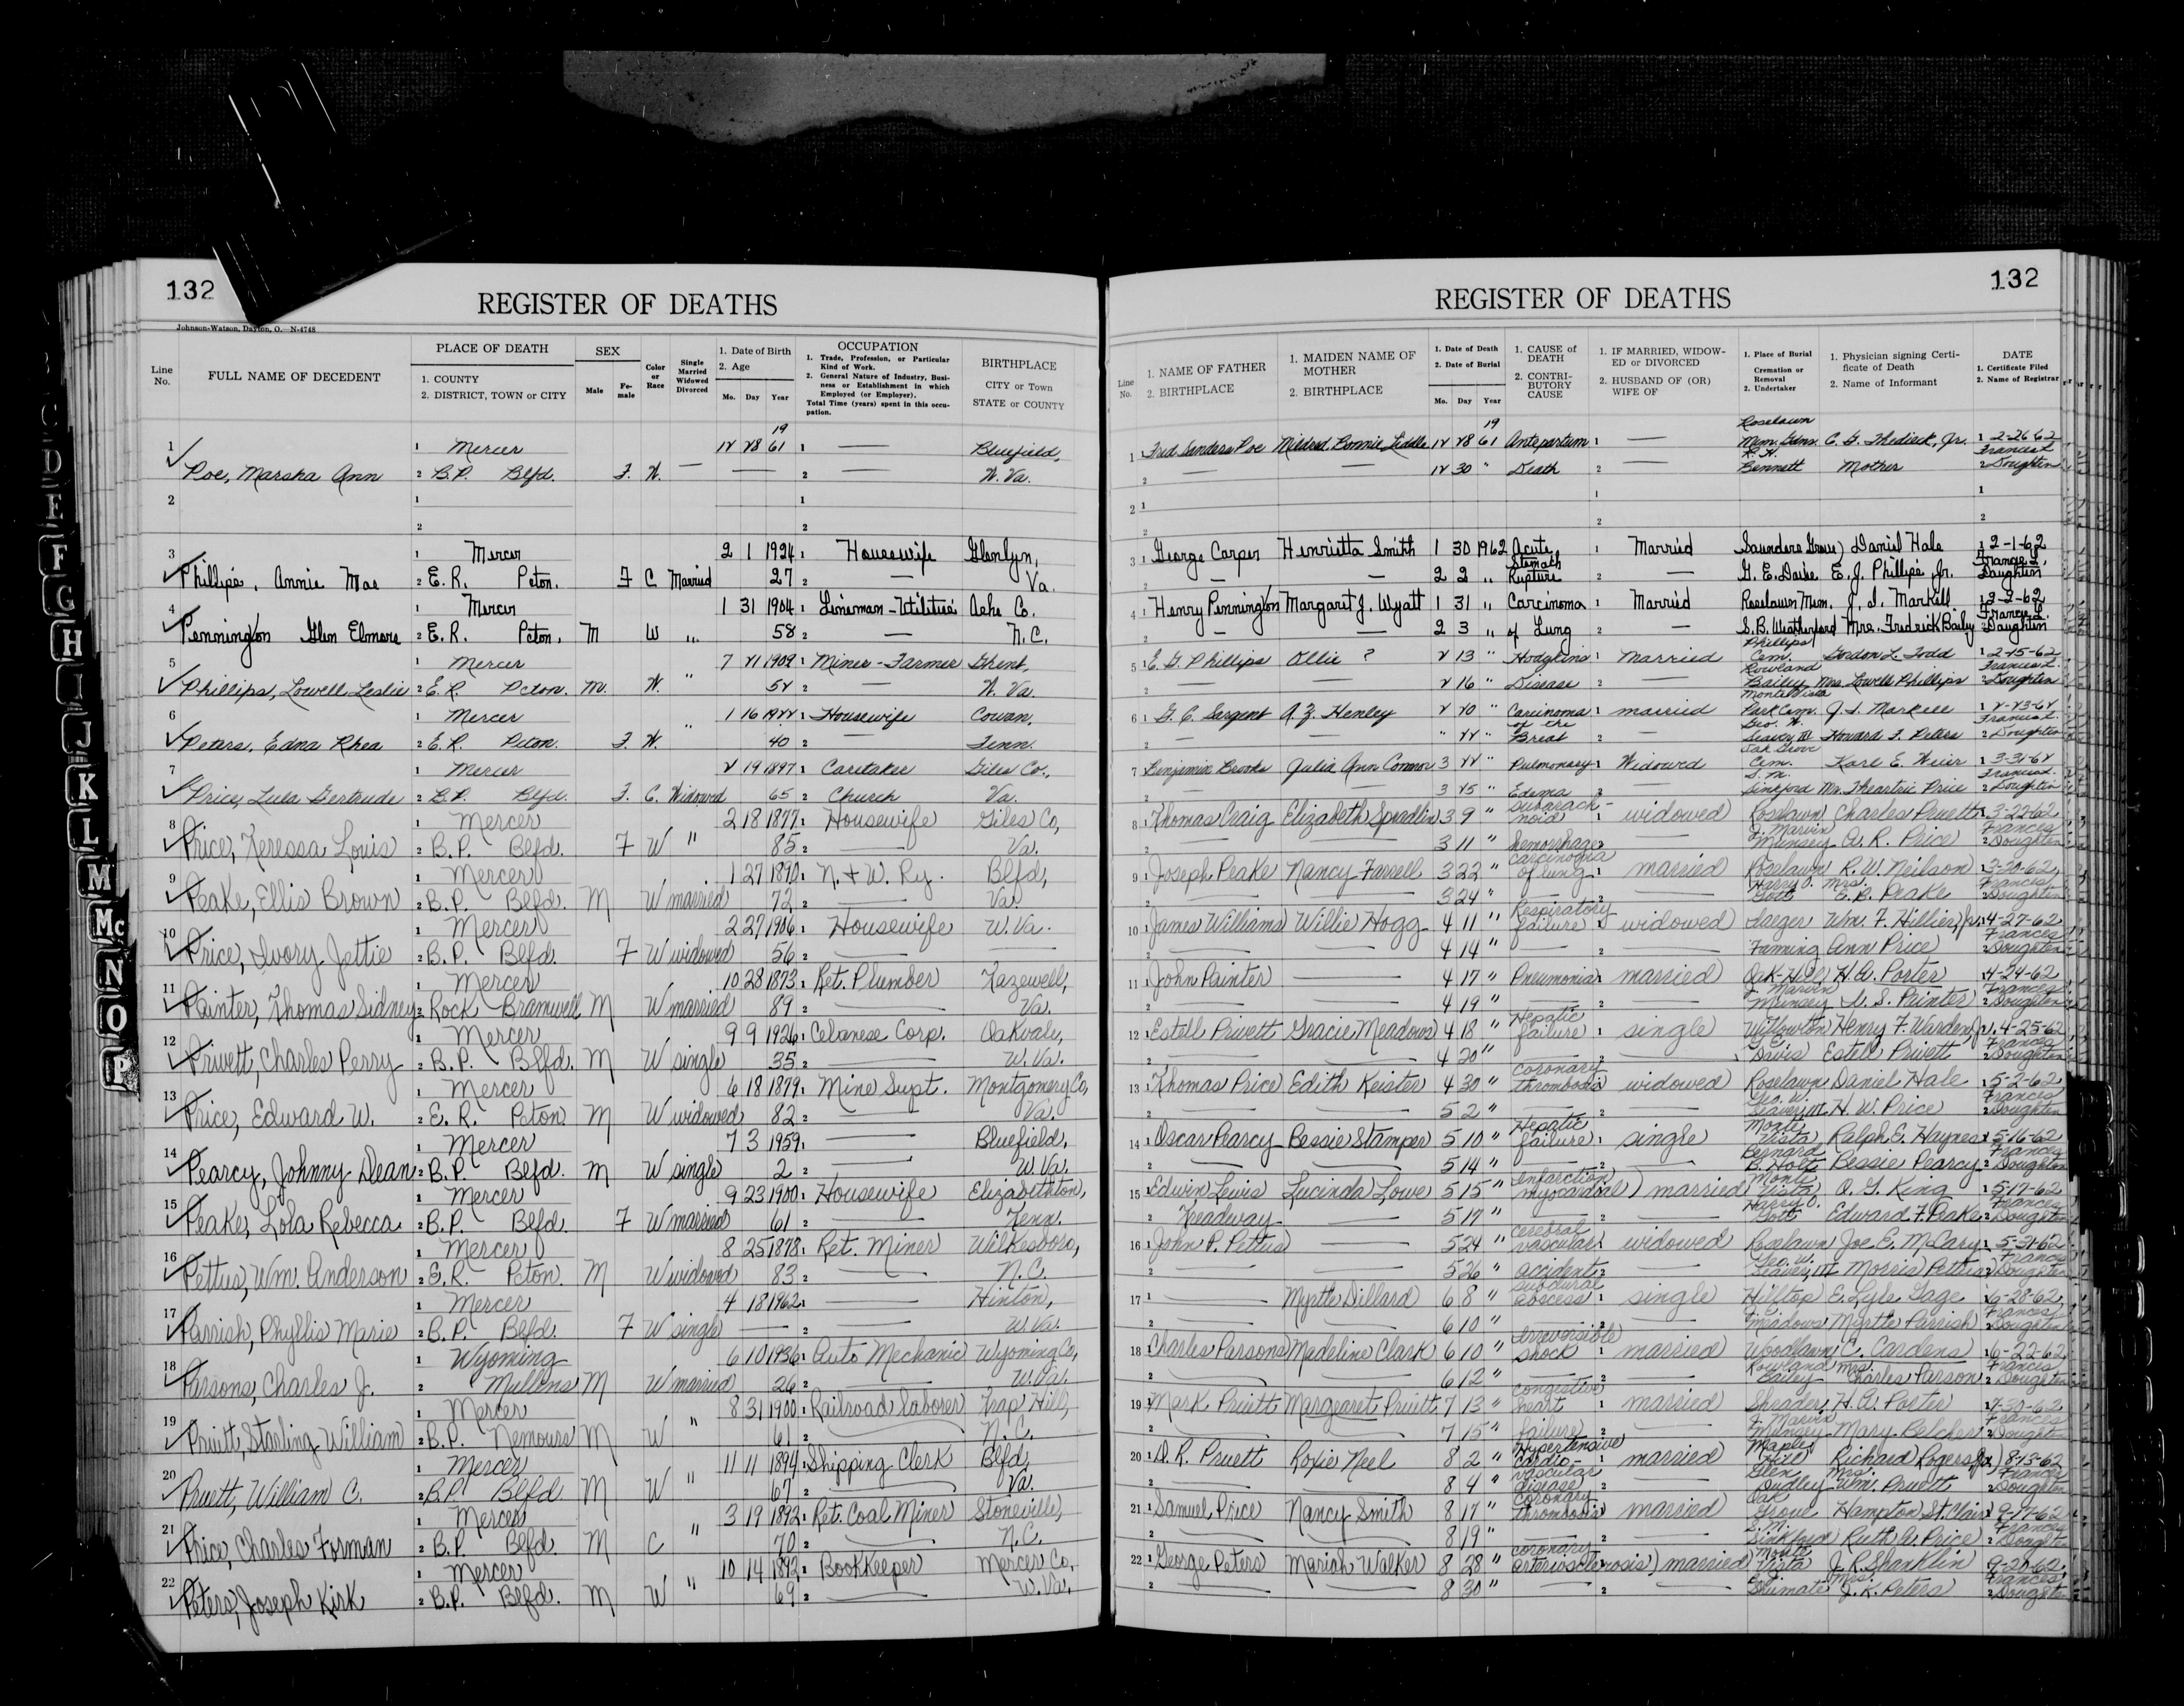 132
REGISTER OF DEATHS
Johnson-Watson, Dayton, O. N-4748
Line No.
FULL NAME OF DECEDENT
PLACE OF DEATH
1. COUNTY
2. DISTRICT, TOWN or CITY
SEX
Male
Fe-male
Color or Race
Single Married Widowed Divorced
1. Date of Birth
2. Age
Mo. Day Year
OCCUPATION
1. Trade, Profession, or Particular Kind of Work.
2. General Nature of Industry, Business or Establishment in which Employed (or Employer).
Total Time (years) spent in this occupation.
BIRTHPLACE
CITY or Town
STATE or COUNTY
1 Mercer 12 28 1961 Bluefield,
Poe, Marsha Ann B.P. Blfd. F. W. W. Va.
2
3 Mercer 2 1 1924 Housewife Glenlyn,
Phillips, Annie Mae E.R. Pcton. F C Married 27 Va.
4 Mercer 1 31 1904 Lineman-Utilities Ashe Co.
Pennington Glen Elmore E.R. Pcton. M W " 58 N.C.
5 Mercer 7 21 1909 Miner-Farmer Ghent,
Phillips, Lowell Leslie E.R. Pcton. M. W. " 52 W. Va.
6 Mercer 1 16 1922 Housewife Cowan,
Peters, Edna Rhea E.R. Pcton. F. W. " 40 Tenn.
7 Mercer 2 19 1897 Caretaker Giles Co.,
Price, Lula Gertrude B.P. Blfd. F. C. Widowed 65 Church Va.
8 Mercer 2 18 1877 Housewife Giles Co,
Price, Keressa Louis B.P. Blfd. F W " 85 Va.
9 Mercer 1 27 1890 N. + W. Ry. Blfd,
Peake, Ellis Brown B.P. Blfd. M W married 72 Va.
10 Mercer 2 27 1906 Housewife W. Va.
Price, Ivory Jettie B.P. Blfd. F W widowed 56
11 Mercer 10 28 1873 Ret. Plumber Tazewell,
Painter, Thomas Sidney Rock Bramwell M W married 89 Va.
12 Mercer 9 9 1926 Celanese Corp. Oakvale,
Privett, Charles Perry B.P. Blfd. M W single 35 W. Va.
13 Mercer 6 18 1879 Mine Supt. Montgomery Co,
Price, Edward W. E. R. Pcton M W widowed 82 Va.
14 Mercer 7 3 1959 Bluefield,
Pearcy, Johnny Dean B.P. Blfd. M W single 2 W. Va.
15 Mercer 9 23 1900 Housewife Elizabethton,
Peake, Lola Rebecca B.P. Blfd. F W married 61 Tenn.
16 Mercer 8 25 1878 Ret. Miner Wilkesboro,
Pettus, Wm. Anderson E.R. Pcton. M W widowed 83 N.C.
17 Mercer 4 18 1962 Hinton,
Parrish, Phyllis Marie B.P. Blfd. F W single W. Va.
18 Wyoming 6 10 1936 Auto Mechanic Wyoming Co,
Parsons, Charles J. Mullens M W married 26 W. Va.
19 Mercer 8 31 1900 Railroad laborer Trap Hill,
Pruitt, Starling William B.P. Nemours M W " 61 N.C.
20 Mercer 11 11 1894 Shipping Clerk Blfd,
Pruett, William C. B.P. Blfd. M W " 67 Va.
21 Mercer 3 19 1892 Ret. Coal Miner Stoneville,
Price, Charles Forman B.P. Blfd. M C " 70 N.C.
22 Mercer 10 14 1892 Bookkeeper Mercer Co,
Peters, Joseph Kirk B.P. Blfd. M W " 69 W. Va.
C
D
E
F
G
H
I
J
K
L
M
Mc
N
O
P
132
REGISTER OF DEATHS
Line No.
1. NAME OF FATHER
2. BIRTHPLACE
1. MAIDEN NAME OF MOTHER
2. BIRTHPLACE
1. Date of Death
2. Date of Burial
Mo. Day Year
1. CAUSE of DEATH
2. CONTRIBUTORY CAUSE
1. IF MARRIED, WIDOWED or DIVORCED
2. HUSBAND OF (OR) WIFE OF
1. Place of Burial Cremation or Removal
2. Undertaker
1. Physician signing Certificate of Death
2. Name of Informant
DATE
1. Certificate Filed
2. Name of Registrar
1 Fred Sanders Poe Mildred Bonnie Liddle 12 28 1961 Antepartum Roselawn Mem. Gdns. C. G. Thedieck, Jr. 2-26-62
12 30 " Death R. H. Bennett Mother Frances L. Doughten
2
3 George Carper Henrietta Smith 1 30 1962 Acute Stomach Married Saunders Grove Daniel Hale 2-1-62
2 2 " Rupture G. E. Davis E. J. Phillips Jr. Frances L. Doughten
4 Henry Pennington Margaret J. Wyatt 1 31 " Carcinoma Married Roselawn Mem. J. I. Markell 2-2-62
2 3 " of Lung S. B. Weatherford Mrs. Fredrick Baily Frances L. Doughten
5 E. G. Phillips Ollie ? 2 13 " Hodgkins Married Phillips Cem. Gordon L. Todd 2-15-62
2 16 " Disease Rowland Bailey Mrs. Lowell Phillips Frances L. Doughten
6 G. C. Sargent A. Z. Henley 2 20 " Carcinoma of the married Monte Vista Park Cem. J. I. Markell 2-23-62
" 22 " Breat Geo. W. Seaver III Howard F. Peters Frances L. Doughten
7 Benjamin Brooks Julia Ann Connor 3 22 " Pulmonary Widowed Oak Grove Cem. Karl E. Weier 3-31-62
3 25 " Edema S. M. Sinkford Mr. Theartric Price Frances L. Doughten
8 Thomas Craig Elizabeth Spradlin 3 9 " Subarachnoid widowed Roselawn Charles Pruett 3-22-62
3 11 " hemorrhage J. Marvin Munsey A. R. Price Frances Doughten
9 Joseph Peake Nancy Farrell 3 22 " carcinoma of lung married Roselawn R. W. Neilson 3-30-62
3 24 " Harry O. Gott Mrs. E. B. Peake Frances Doughten
10 James Williams Willie Hogg 4 11 " Respiratory failure widowed Iaeger Wm. F. Hillier, Jr. 4-27-62
4 14 " Fanning Ann Price Frances Doughten
11 John Painter 4 17 " Pneumonia married Oak Hill H. A. Porter 4-24-62
4 19 " J. Marvin Munsey S. Painter Frances Doughten
12 Estell Privett Gracie Meadows 4 18 " Hepatic failure single Willowton Henry F. Warden, Jr. 4-25-62
4 20 " G. E. Davis Estell Privett Frances Doughten
13 Thomas Price Edith Keister 4 30 " coronary thrombosis widowed Roselawn Daniel Hale 5-2-62
5 2 " Geo. W. Seaver, III H. W. Price Frances Doughten
14 Oscar Pearcy Bessie Stamper 5 10 " Hepatic failure single Monte Vista Ralph E. Haynes 5-16-62
5 14 " Bernard B. Holt Bessie Pearcy Frances Doughten
15 Edwin Lewis Lucinda Lowe 5 15 " infarction myocardial married Monte Vista O. G. King 5-17-62
Treadway 5 17 " Harry O. Gott Edward F. Peake Frances Doughten
16 John P. Pettus 5 24 " cerebral vascular widowed Roselawn Joe E. McCary 5-31-62
5 26 " accident Geo. W. Seaver, III Morris Pettus Frances Doughten
17 Myrtle Dillard 6 8 " subdural abscess single Hilltop E. Lyle Gage 6-28-62
6 10 " Meadows Myrtle Parrish Frances Doughten
18 Charles Parsons Madeline Clark 6 10 " Irreversible shock married Woodlawn C. Cardens 6-22-62
6 12 " Rowland Bailey Mrs. Charles Parson Frances Doughten
19 Mark Pruitt Margearet Pruitt 7 13 " congestive heart married Shrader H. A. Porter 7-30-62
7 15 " failure J. Marvin Munsey Mary Belcher Frances Doughten
20 D. R. Pruett Roxie Neel 8 2 " Hypertensive cardio- married Maple Hill Richard Rogers (Jr.) 8-13-62
8 4 " vascular disease Glen Dudley Mrs. Wm. Pruett Frances Doughten
21 Samuel Price Nancy Smith 8 17 " coronary thrombosis married Oak Grove Hampton St. Clair 9-17-62
8 19 " S. M. Sinkford Ruth W. Price Frances Doughten
22 George Peters Mariah Walker 8 28 " coronary arteriosclerosis married Monte Vista J. R. Shanklin 9-20-62
8 30 " Shumate Mrs. J. K. Peters Frances Doughten